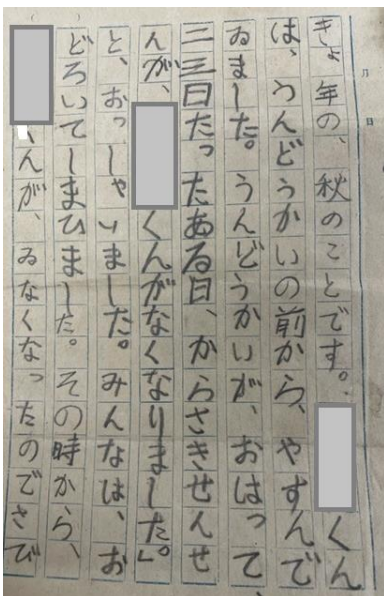 きょ年の、秋のことです。くん
は、うんどうかいの前から、やすんで
ゐました。うんどうかいが、おはって、
二三日たったある日、からさきせんせ
んが、くんがなくなりました。」
と、おっしゃいました。みんなは、お
どろいてしまひました。その時から、
くんが、ゐなくなったのでさび